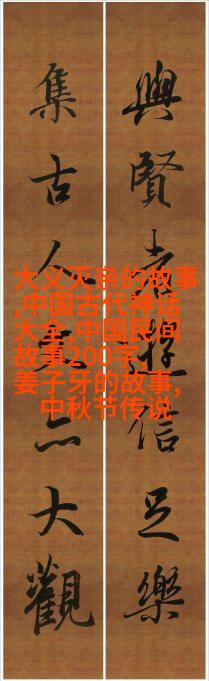 與賢者遊信足樂
集古人文亦大觀
大义灭亲的故事
,中国古代神话
大全,中国民间
故事200字,
姜子牙的故事,
中秋节传说